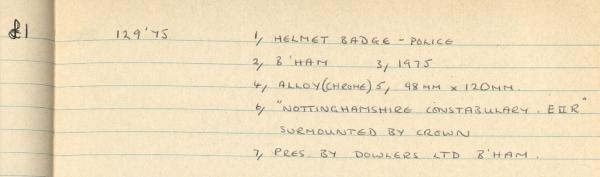 £1 129'75 1, HELMET BADGE - POLICE
2, B'HAM 3, 1975
4, ALLOY (CHROME) 5, 98MM x 120MM.
6, "NOTTINGHAMSHIRE CONSTABULARY. EIIR"
SURMOUNTED BY CROWN
7, PRES. BY DOWLERS LTD B'HAM.